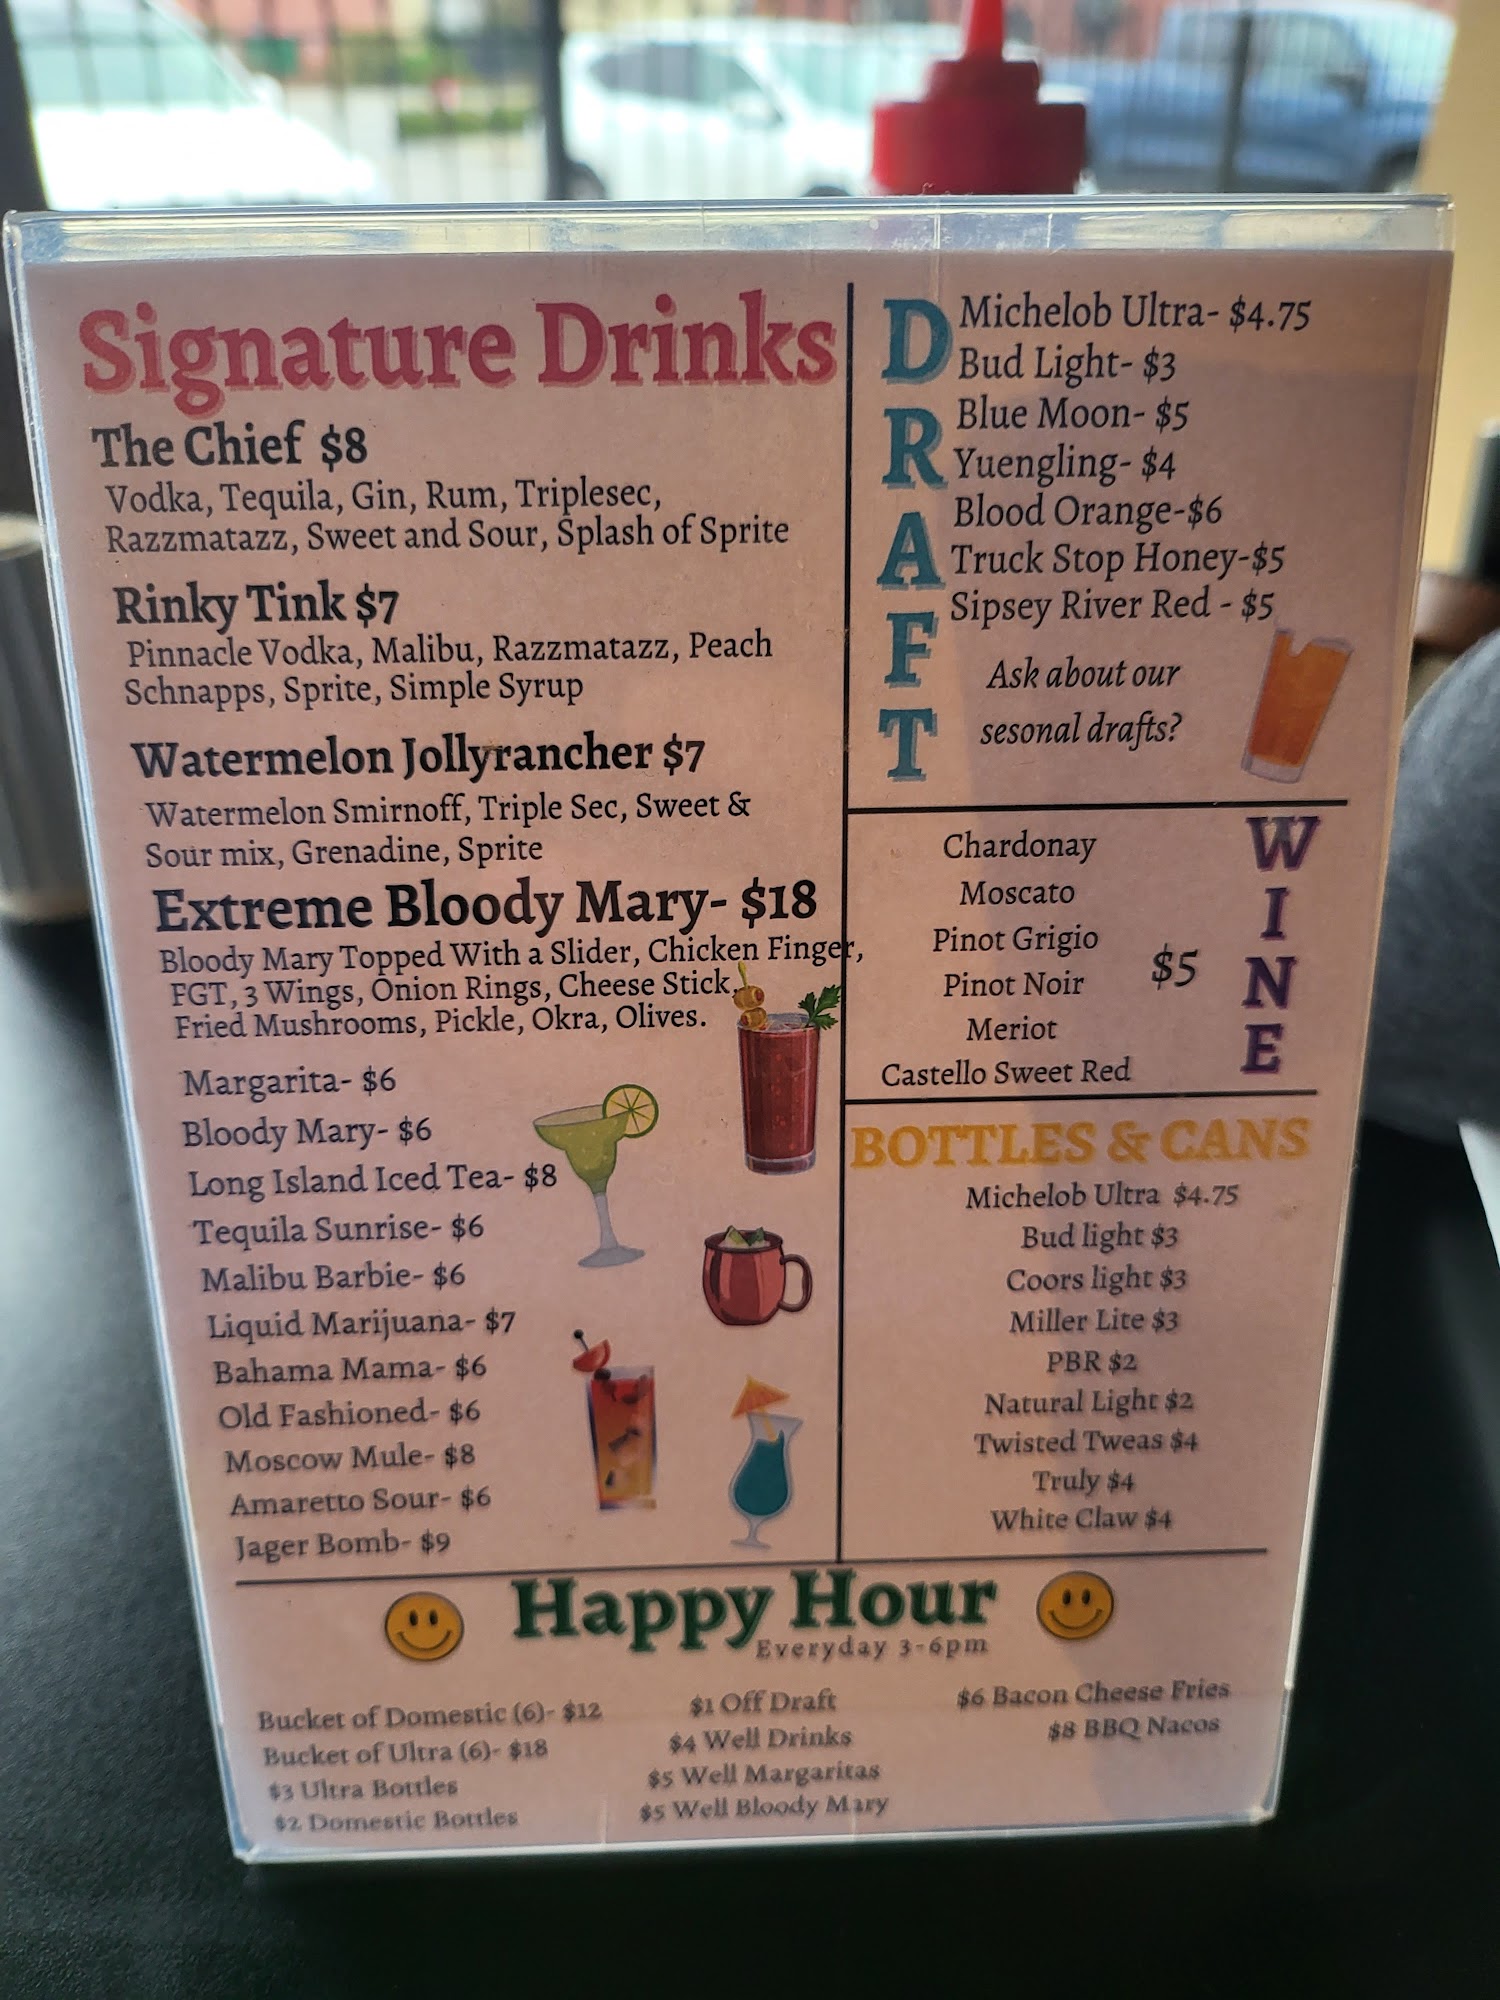 Signature Drinks
The Chief $8
Vodka, Tequila, Gin, Rum, Triplesec,
Razzmatazz, Sweet and Sour, Splash of Sprite
Rinky Tink $7
Pinnacle Vodka, Malibu, Razzmatazz, Peach
Schnapps, Sprite, Simple Syrup
Watermelon Jollyrancher $7
Watermelon Smirnoff, Triple Sec, Sweet &
Sour mix, Grenadine, Sprite
Extreme Bloody Mary- $18
Bloody Mary Topped With a Slider, Chicken Finger,
FGT, 3 Wings, Onion Rings, Cheese Stick,
Fried Mushrooms, Pickle, Okra, Olives.
Margarita- $6
Bloody Mary- $6
Long Island Iced Tea- $8
Tequila Sunrise- $6
Malibu Barbie- $6
Liquid Marijuana- $7
Bahama Mama- $6
Old Fashioned- $6
Moscow Mule- $8
Amaretto Sour- $6
Jager Bomb- $9
DRAFT
Michelob Ultra- $4.75
Bud Light- $3
Blue Moon- $5
Yuengling- $4
Blood Orange-$6
Truck Stop Honey-$5
Sipsey River Red - $5
Ask about our
sesonal drafts?
WINE
Chardonay
Moscato
Pinot Grigio
Pinot Noir
Meriot
Castello Sweet Red
$5
BOTTLES & CANS
Michelob Ultra $4.75
Bud light $3
Coors light $3
Miller Lite $3
PBR $2
Natural Light $2
Twisted Tweas $4
Truly $4
White Claw $4
Happy Hour
Everyday 3-6pm
Bucket of Domestic (6)- $12
Bucket of Ultra (6)- $18
$3 Ultra Bottles
$2 Domestic Bottles
$1 Off Draft
$4 Well Drinks
$5 Well Margaritas
$5 Well Bloody Mary
$6 Bacon Cheese Fries
$8 BBQ Nacos